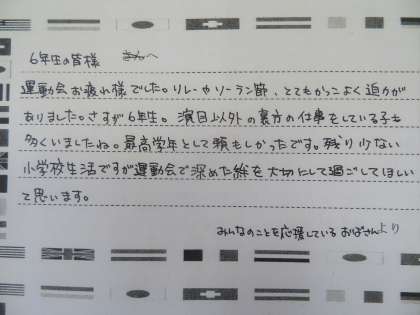 6年生の皆様 へ
運動会お疲れ様でした。リレーやソーラン節、とてもかっこよく迫力が
ありました。さすが6年生。演目以外の裏方の仕事をしている子も
多くいましたね。最高学年として頼もしかったです。残り少ない
小学校生活ですが運動会で深めた絆を大切にして過ごしてほしい
て思います。
みんなのことを応援しているおばさんより